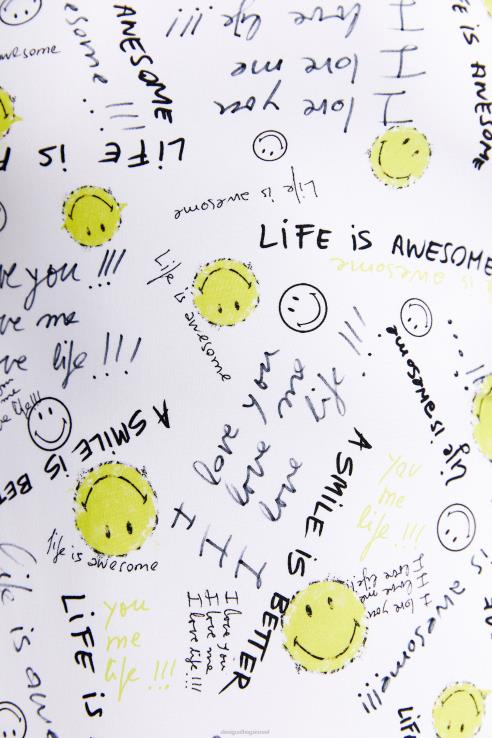 awesome
esome !!!
AWESOME
I love life !!!
I love me
I love you
E IS AWESOME
LIFE IS
Life is awesome
LIFE IS AWESOME
is awesome
ve you !!!
ve me
ve life !!!
Life is awesome
Life is awesome
I love you
I love me
I love life !!!
A SMILE IS BETTER
A SMILE IS BET
you
me
life !!!
life is awesome
LIFE IS
you
me
life !!!
I love you
I love me
I love life !!!
I love you
I love me
I love life !!
is awesome!!!
life is aw
LIF